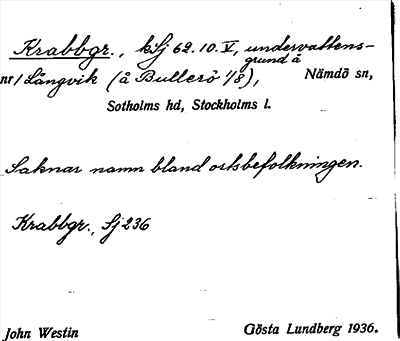 Krabbgr., k Sj 62.10.V, undervattens-
grund å
nr 1 Långvik (å Bullerö 1/8), Nämdö sn,
Sotholms hd, Stockholms l.
Saknar namn bland ortsbefolkningen.
Krabbgr., Sj 236
John Westin Gösta Lundberg 1936.